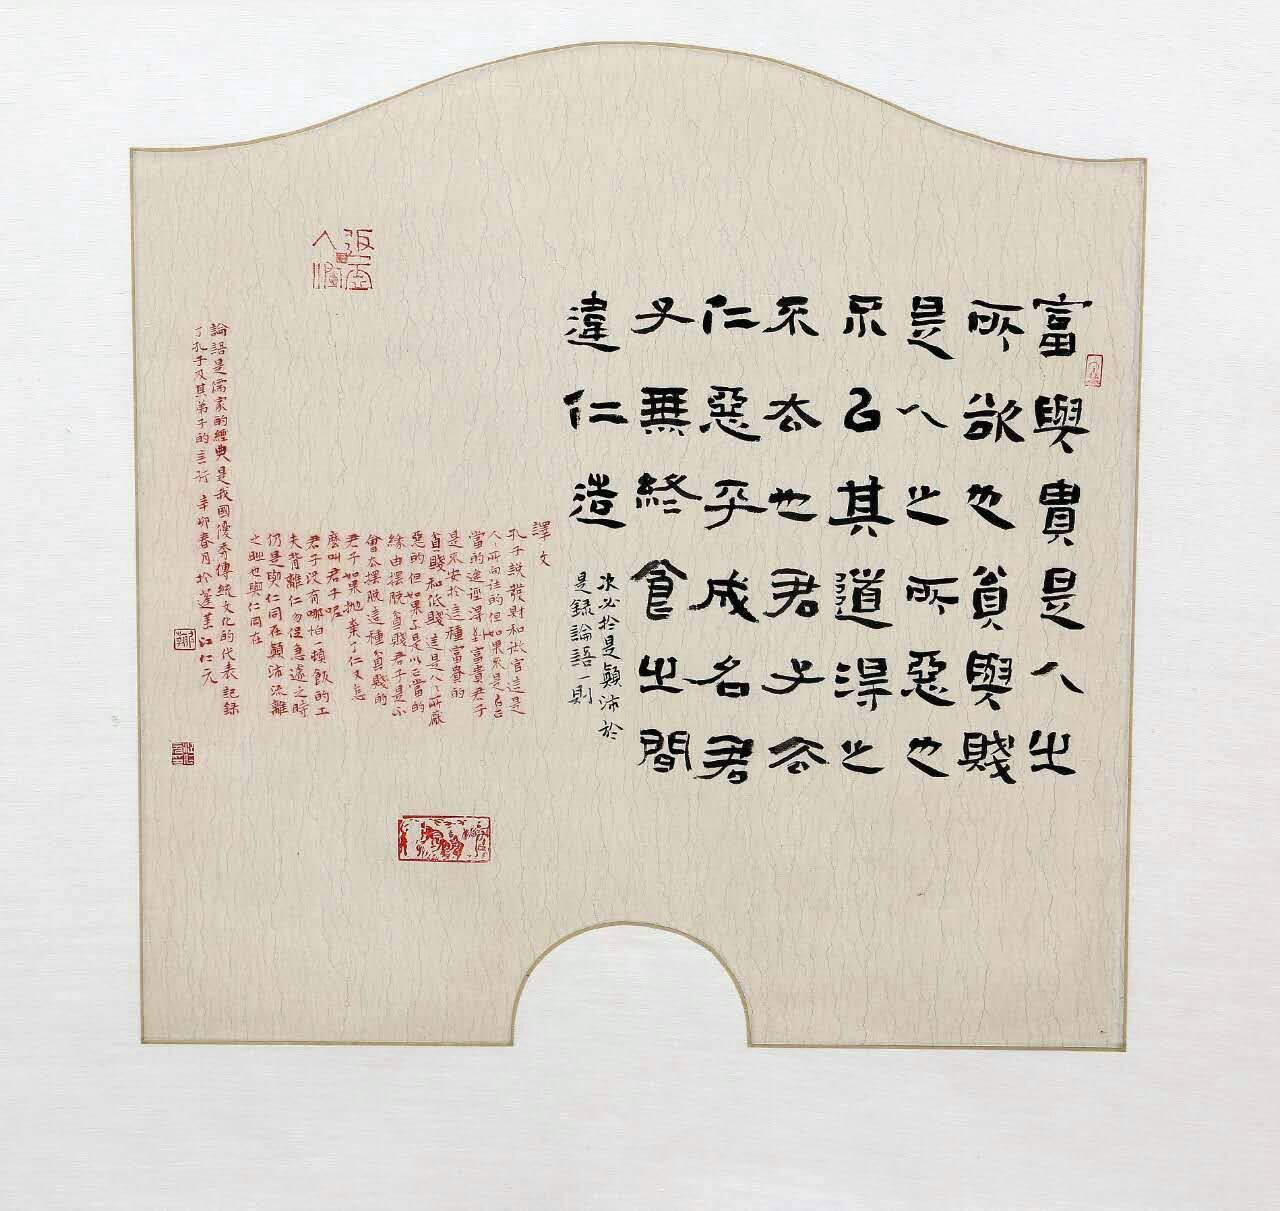 富與貴是人之
所欲也貧與賤
是人之所惡也
不以其道得之
不去也君子去
仁惡乎成名君
子無終食之間
違仁造
次必於是顛沛於
是錄論語一則
譯文
孔子説發財和做官這是
人人所向往的但如果不是以正
當的途徑得到富貴君子
是不安於這種富貴的
貧賤和低賤這是人人所厭
惡的但如果不是以正當的
緣由擺脫貧賤君子是不
會去擺脫這種貧賤的
君子如果拋棄了仁又怎
麼叫君子呢
君子沒有哪怕一頓飯的工
夫背離仁匆促急遽之時
仍是與仁同在顛沛流離
之時也與仁同在
論語是儒家的經典是我國優秀傳統文化的代表記錄
了孔子及其弟子的言行 辛卯春月於